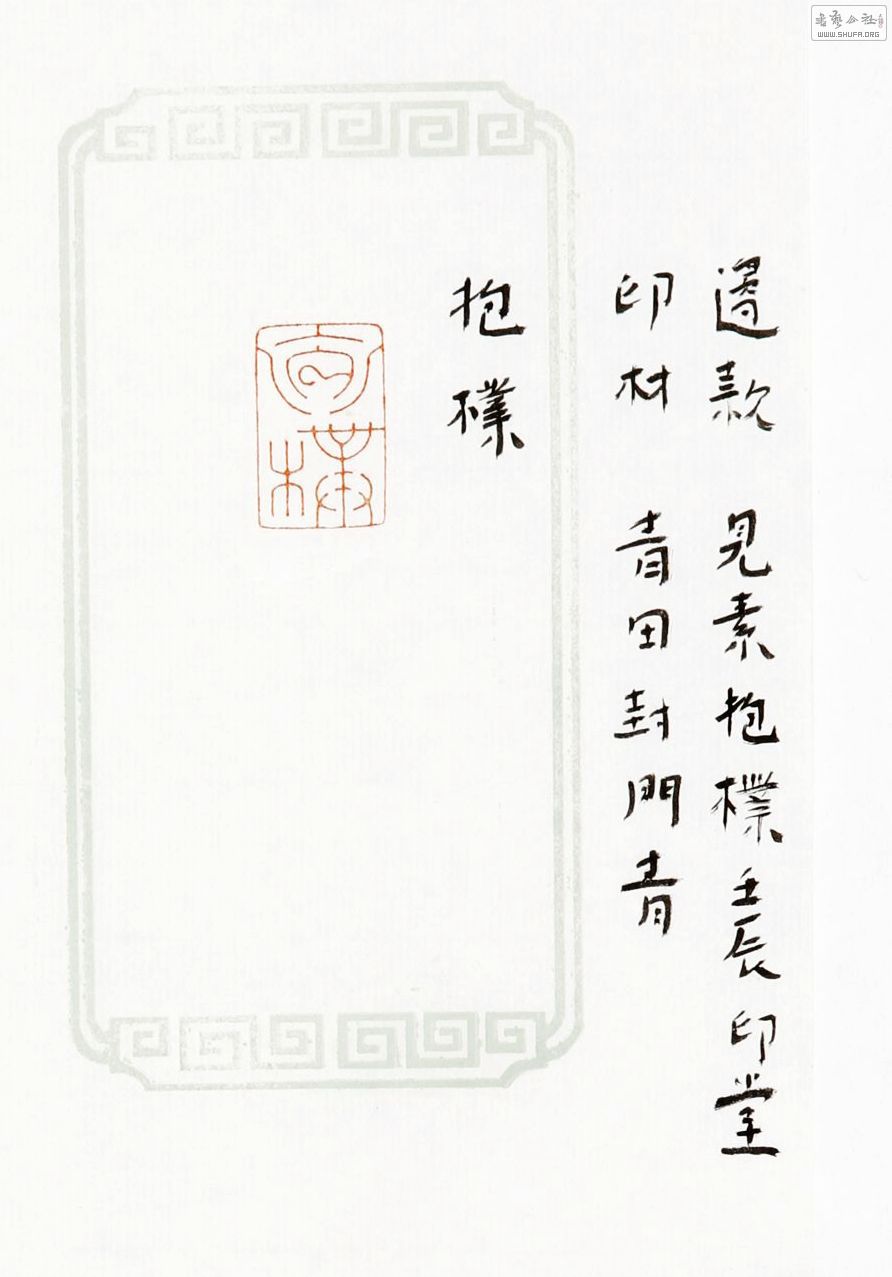 邊款 見素抱樸 壬辰印堂
印材 青田封門青
抱樸
WWW.SHUFA.ORG